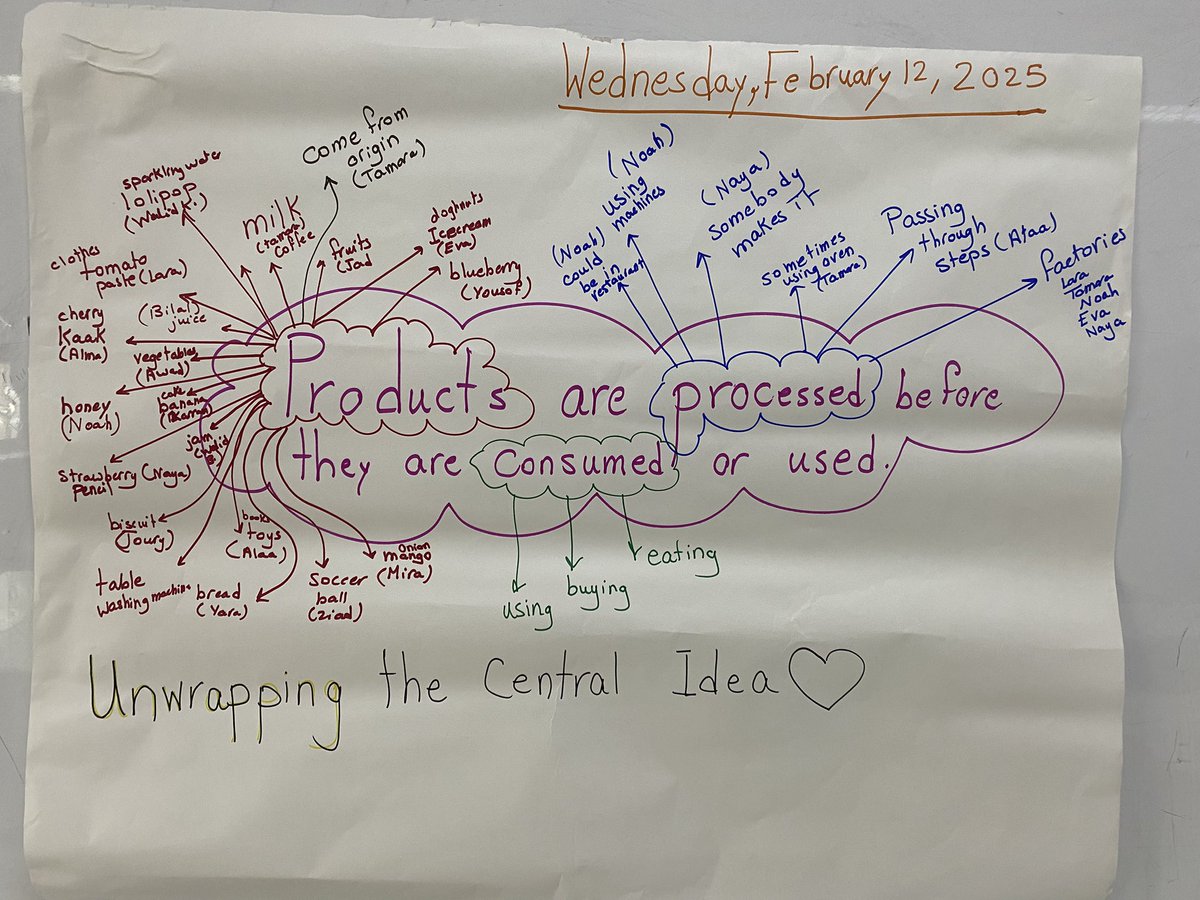 Wednesday, February 12, 2025
come from
origin
(Tamara)
sparkling water
lolipop
(Walid K.)
milk
(tamara)
coffee
fruits
(Jad
doghnuts
Icecream
(Eva)
blueberry
(Yousof)
clothes
tomato
paste (Lara)
(Bilal)
juice
cherry
Kaak
(Alma)
vegetables
(Awad)
honey
(Noah)
cake
banana
jam
(Walid
B.)
strawberry (Naya)
pencil
biscuit
(Joury)
books
toys
(Alaa)
table
washing machine
bread
(Yara)
Soccer
ball
(Ziad)
onion
mango
(Mira)
(Noah)
using
machines
(Noah)
could
be in
restaurant
(Naya)
somebody
makes it
sometimes
using oven
(Tamara)
Passing
through
steps (Alaa)
factories
Lara
Tamara
Noah
Eva
Naya
Products are processed before
they are consumed or used.
using
buying
eating
Unwrapping the Central Idea